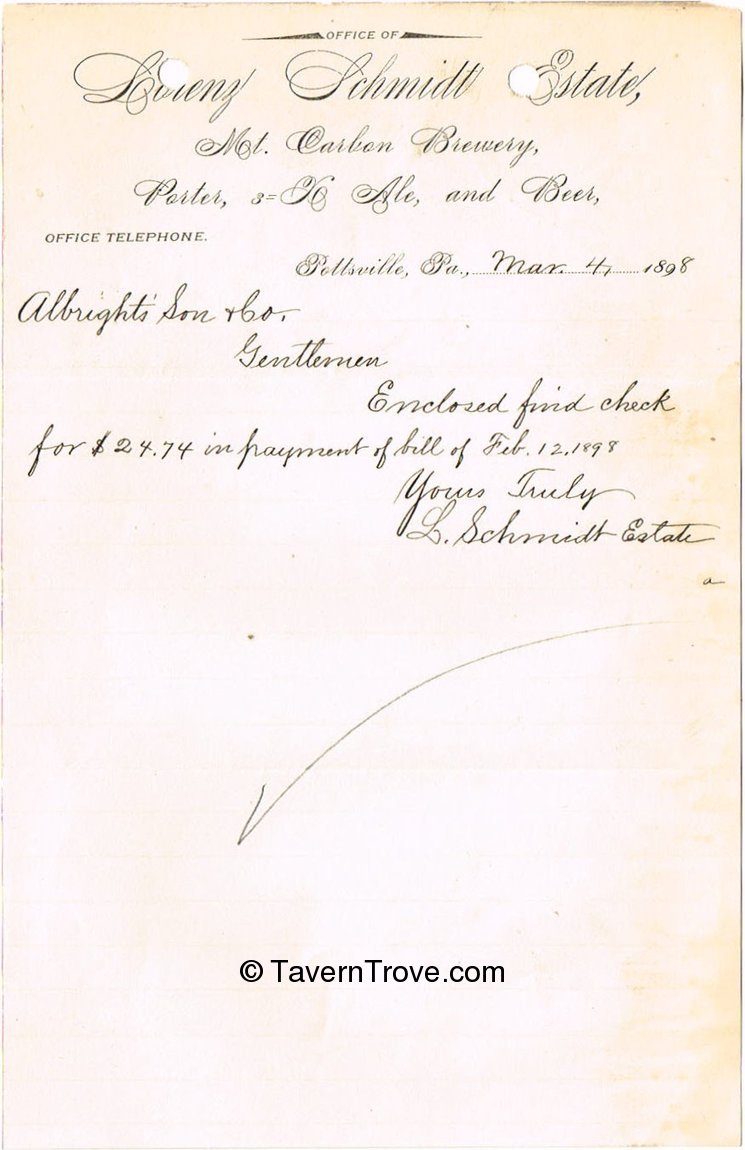 OFFICE OF
Lorenz Schmidt Estate,
Mt. Carbon Brewery,
Porter, 3=X Ale, and Beer,
OFFICE TELEPHONE.
Pottsville, Pa., Mar. 4, 1898
Albrights' Son & Co.
Gentlemen
Enclosed find check
for $24.74 in payment of bill of Feb. 12. 1898
Yours Truly
L. Schmidt Estate
a
© TavernTrove.com